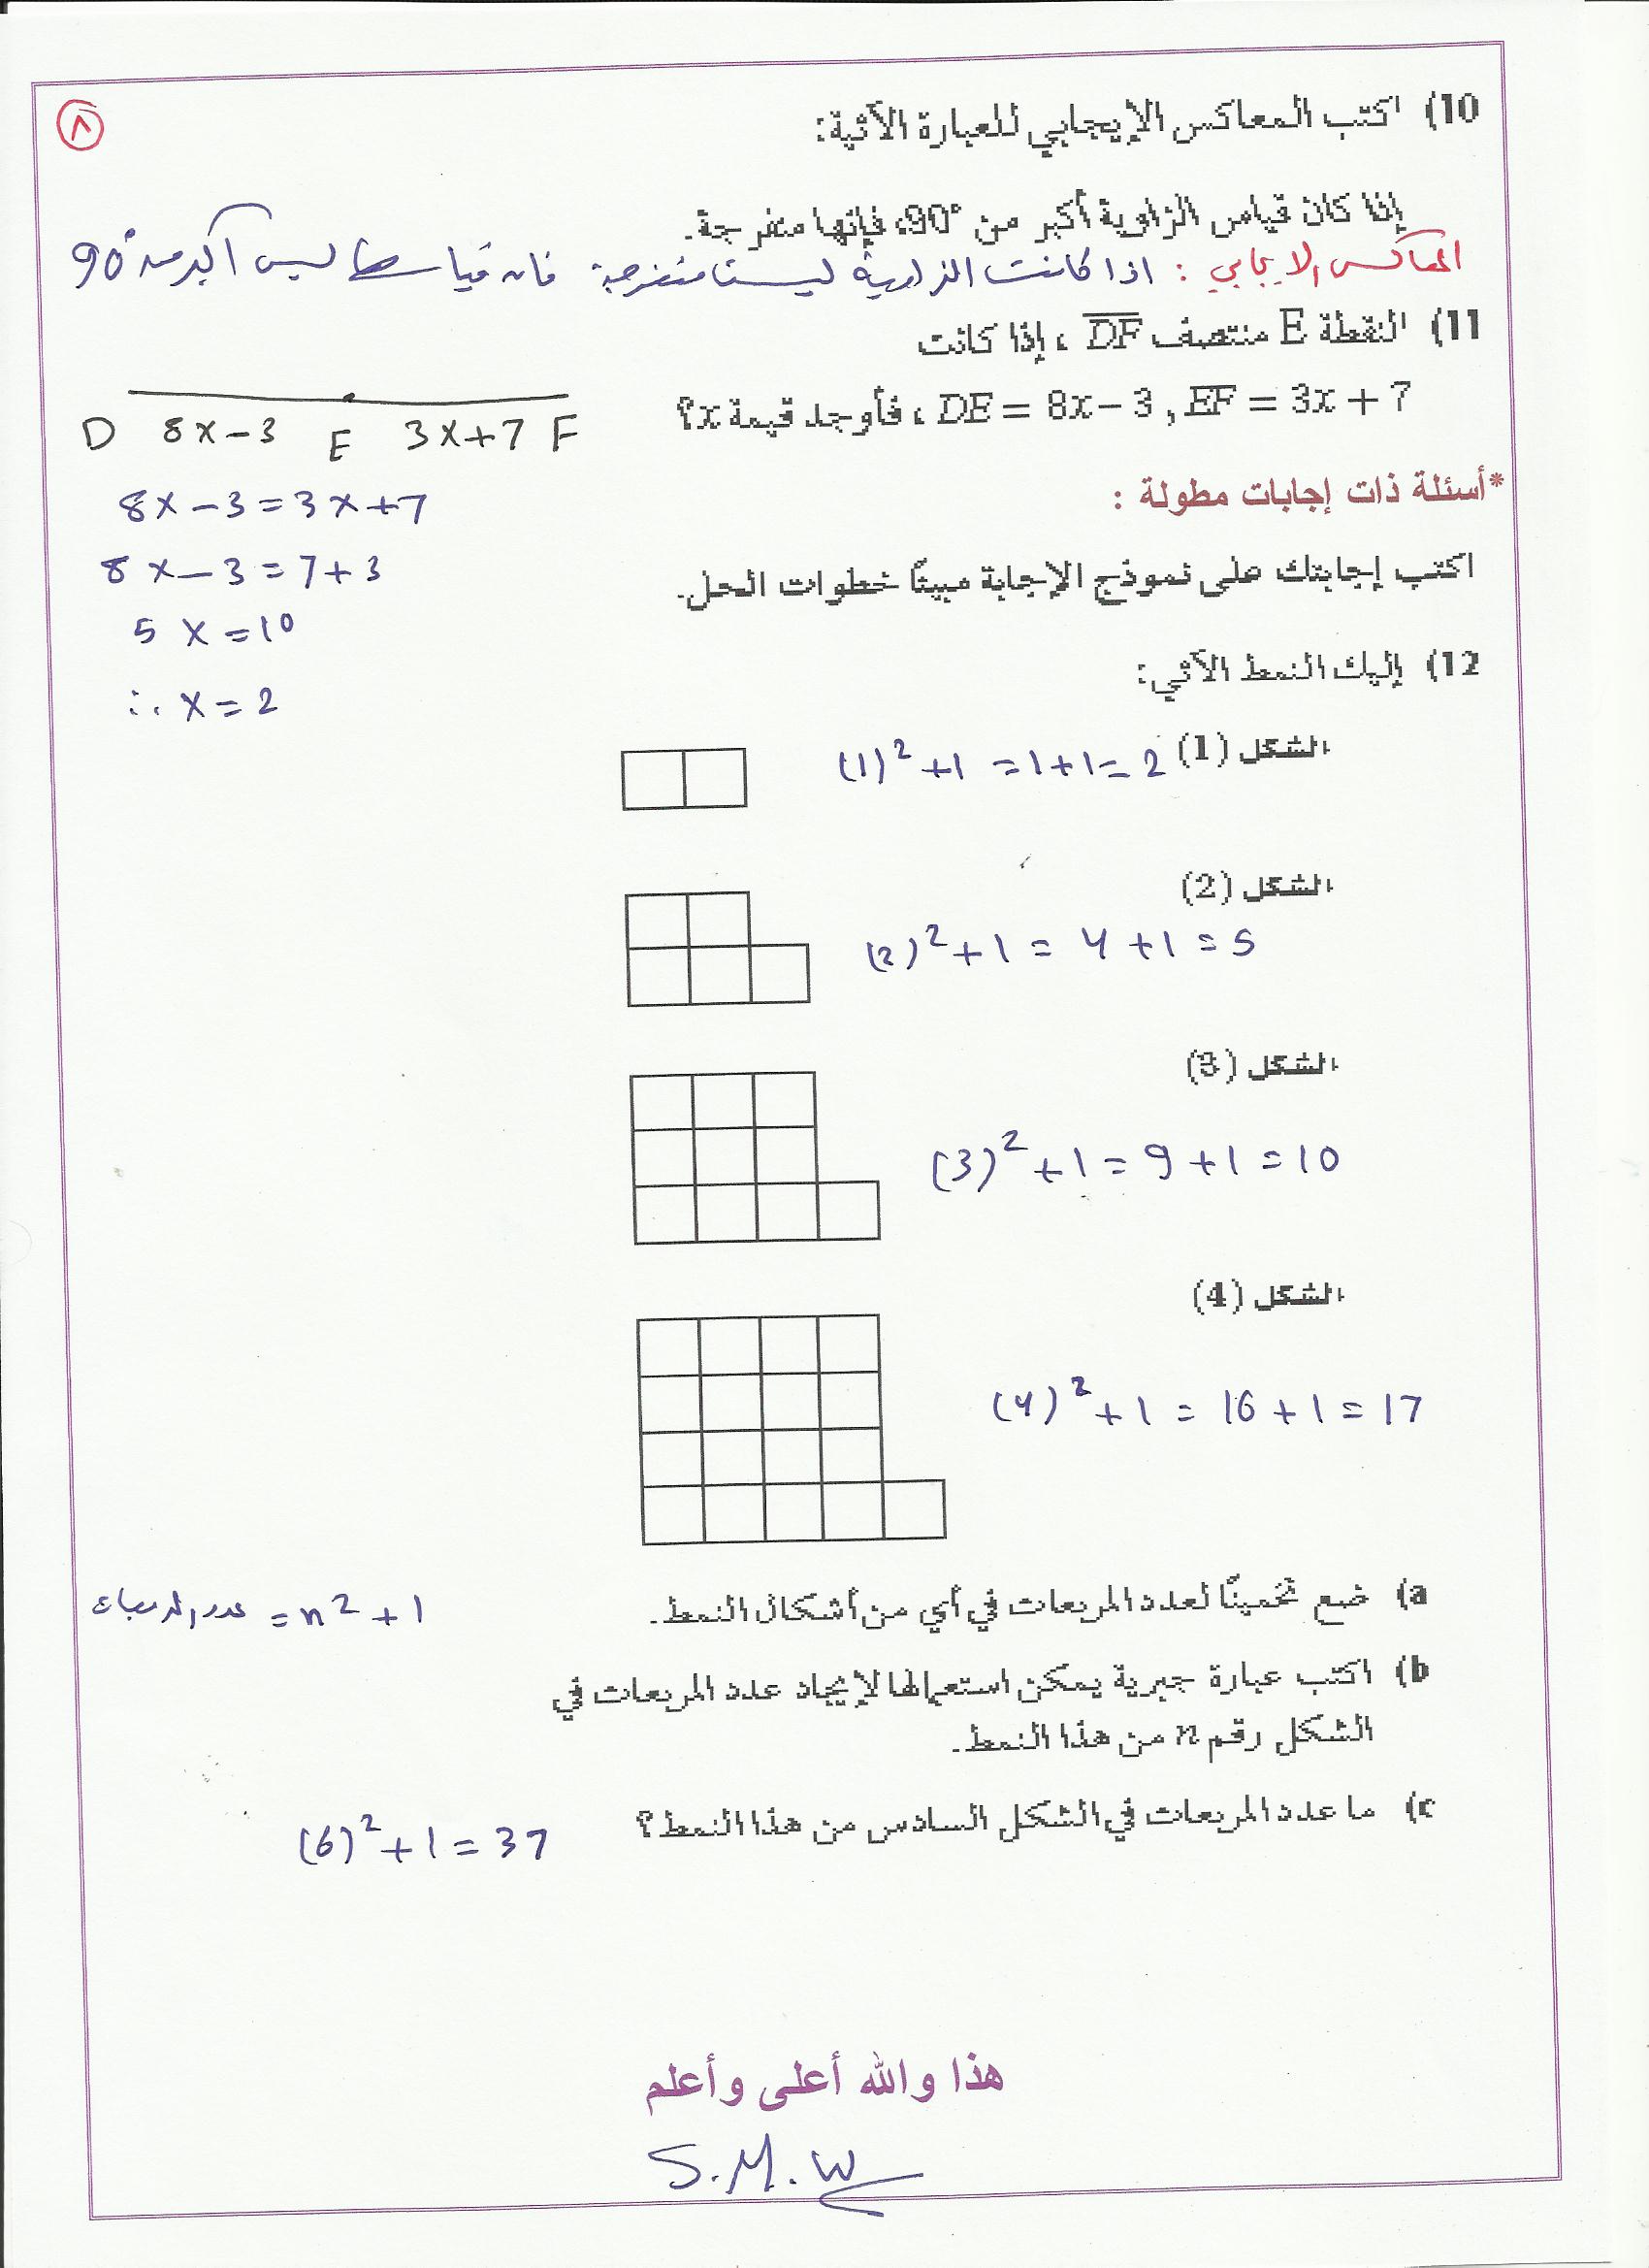 ٨
10) اكتب المعاكس الإيجابي للعبارة الآتية:
إذا كان قياس الزاوية أكبر من 90°، فإنها منفرجة.
المعاكس الايجابي : اذا كانت الزاوية ليست منفرجة فان قياسها ليس اكبر من 90°
11) النقطة E منتصف DF ، إذا كانت
DE = 8x − 3 , EF = 3x + 7 ، فأوجد قيمة x؟
D 8x−3 E 3x+7 F
8x−3=3x+7
8x−3=7+3
5x=10
∴ x=2
*أسئلة ذات إجابات مطولة :
اكتب إجابتك على نموذج الإجابة مبينًا خطوات الحل.
12) إليك النمط الآتي:
الشكل (1)
(1)²+1 =1+1=2
الشكل (2)
(2)²+1 = 4+1=5
الشكل (3)
(3)²+1=9+1=10
الشكل (4)
(4)²+1 = 16+1=17
a) ضع تخمينًا لعدد المربعات في أي من أشكال النمط.
عدد المربعات = n²+1
b) اكتب عبارة جبرية يمكن استعمالها لإيجاد عدد المربعات في
الشكل رقم n من هذا النمط.
c) ما عدد المربعات في الشكل السادس من هذا النمط؟
(6)²+1=37
هذا والله أعلى وأعلم
S.M.W